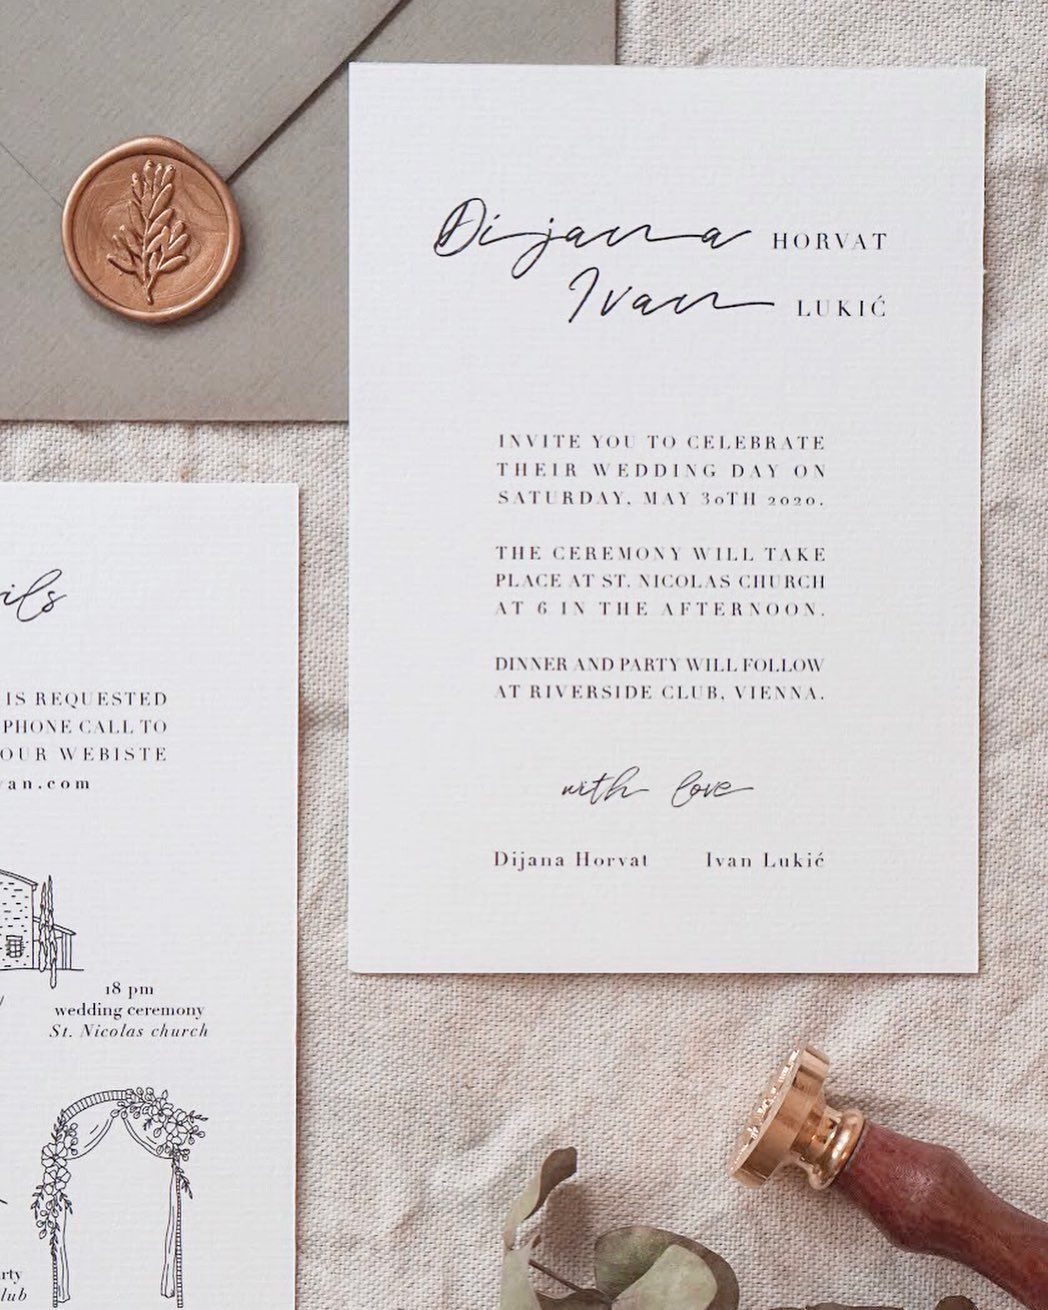 Dijana HORVAT
Ivan LUKIĆ
INVITE YOU TO CELEBRATE
THEIR WEDDING DAY ON
SATURDAY, MAY 30TH 2020.
THE CEREMONY WILL TAKE
PLACE AT ST. NICOLAS CHURCH
AT 6 IN THE AFTERNOON.
DINNER AND PARTY WILL FOLLOW
AT RIVERSIDE CLUB, VIENNA.
with love
Dijana Horvat Ivan Lukić
ils
IS REQUESTED
PHONE CALL TO
OUR WEBISTE
van.com
18 pm
wedding ceremony
St. Nicolas church
rty
lub